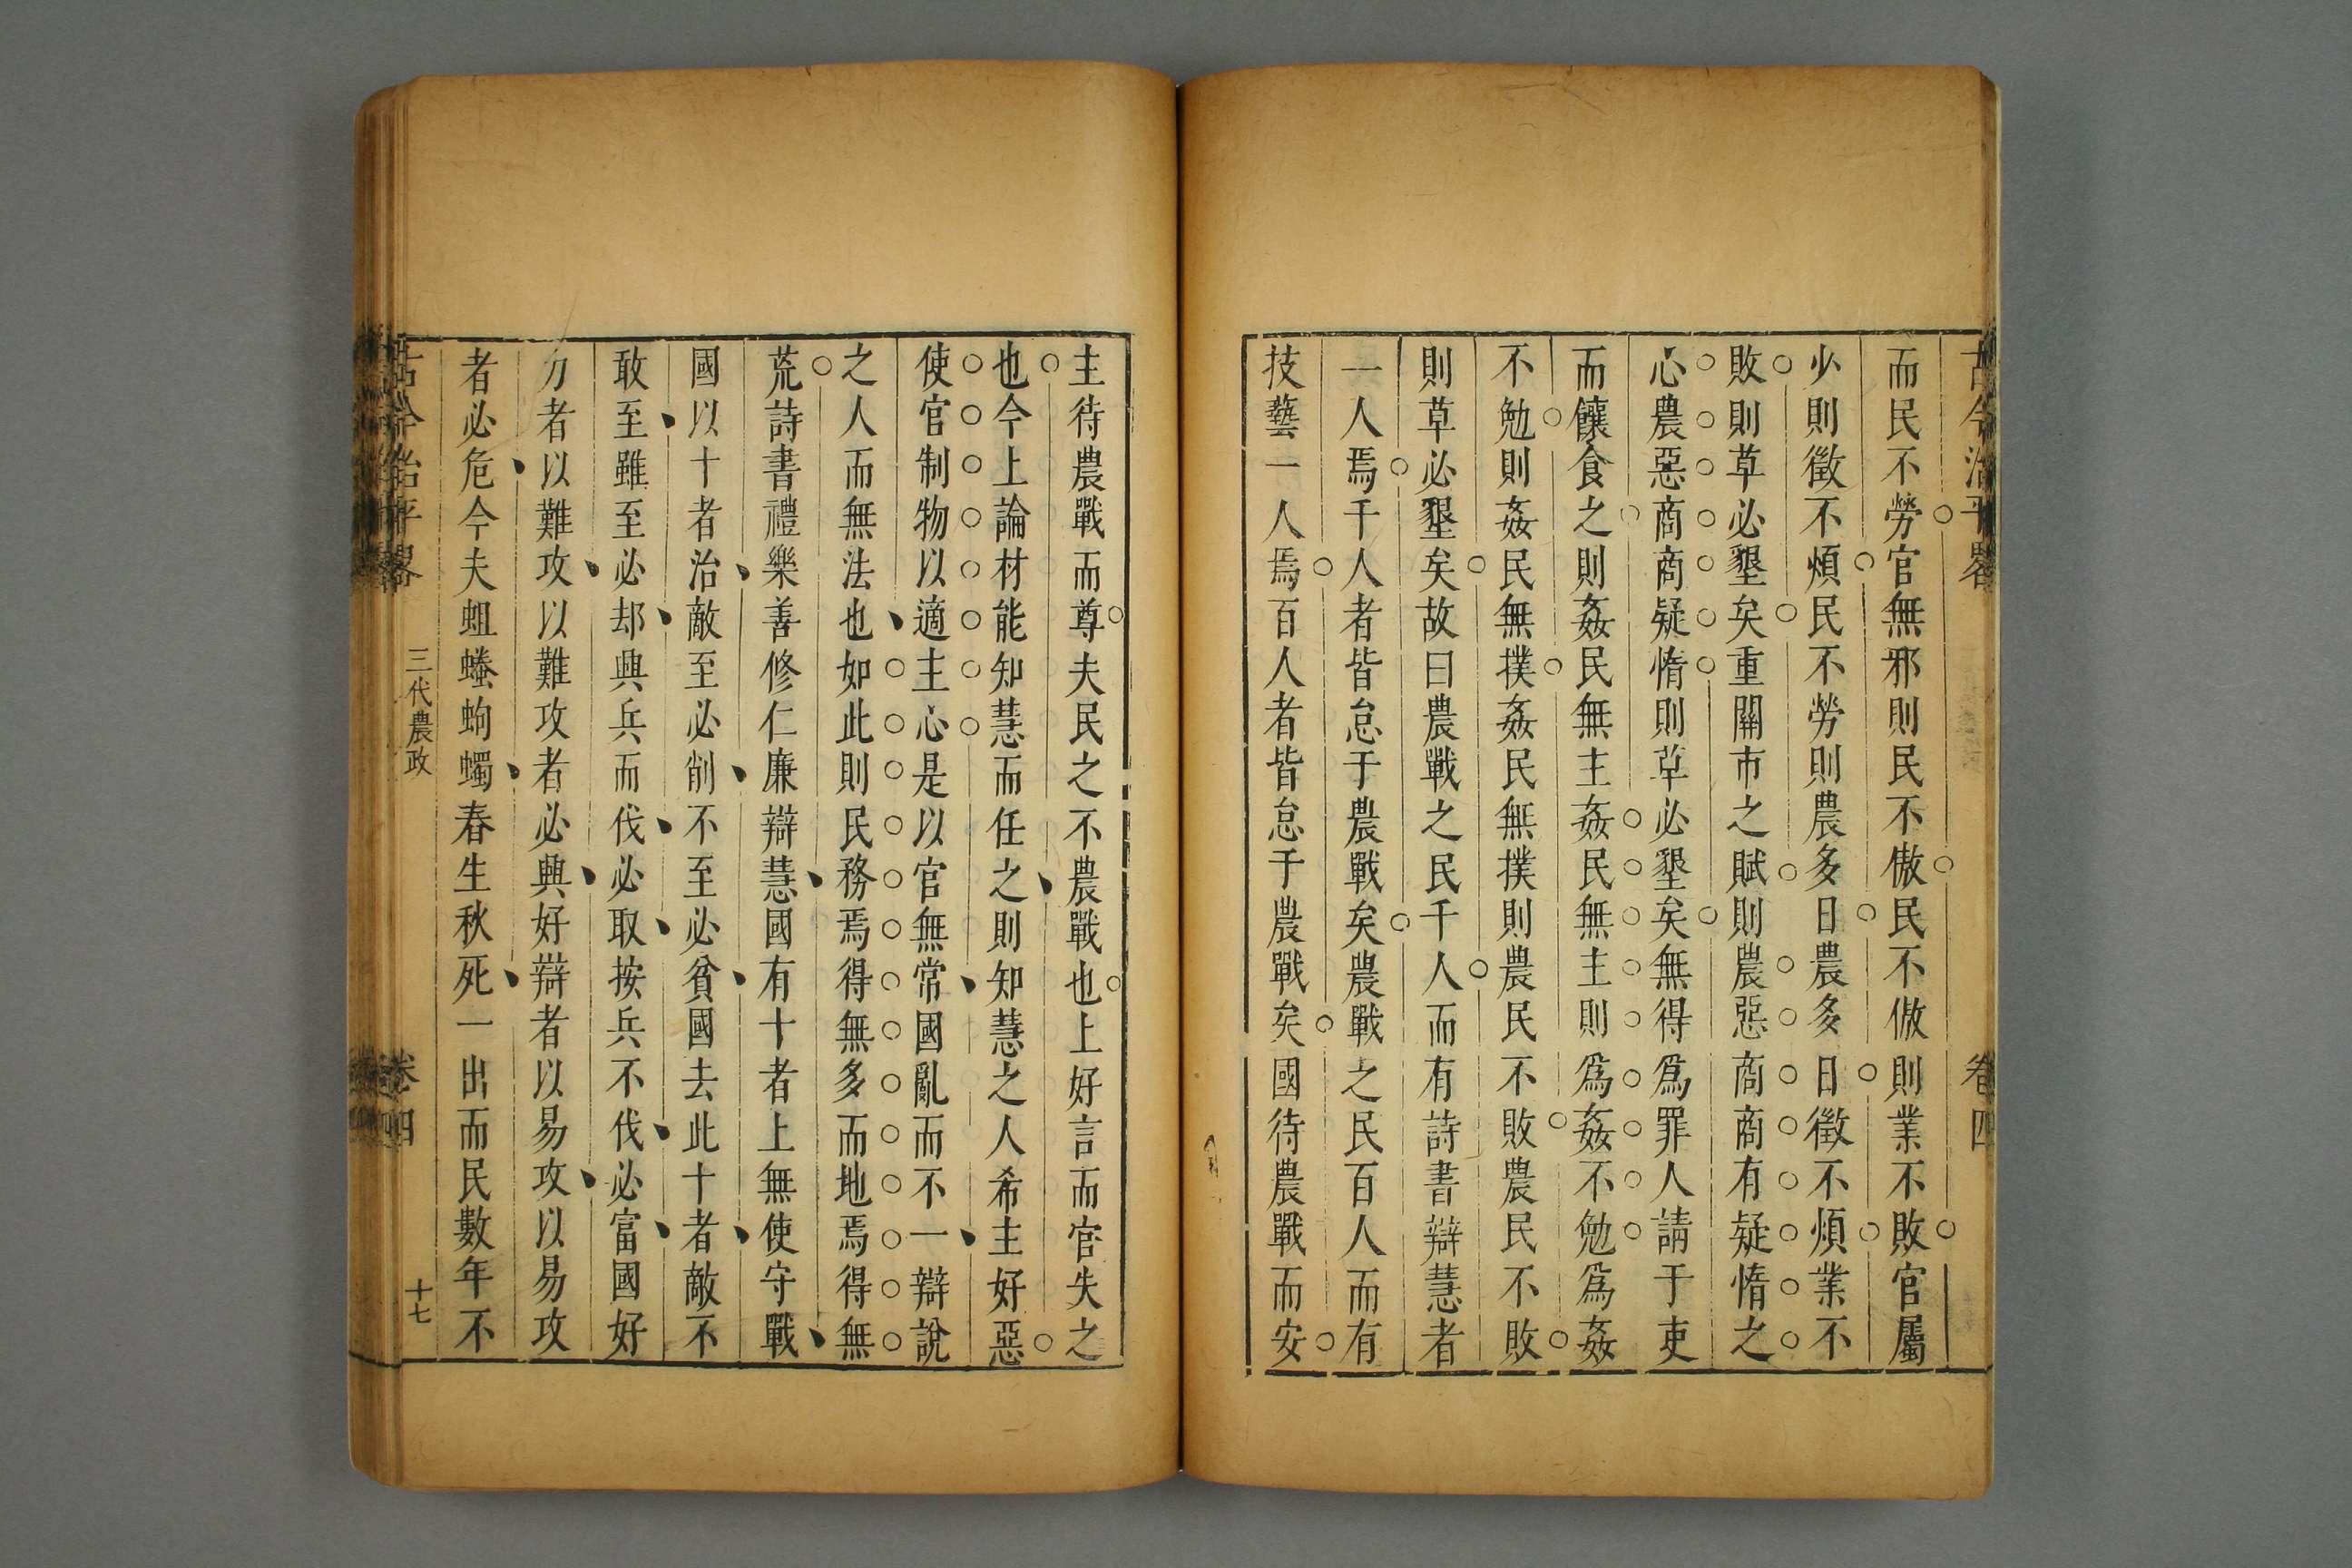 古今治平畧
卷四
而民不勞官無邪則民不傲民不傲則業不敗官屬
少則徵不煩民不勞則農多日農多日徵不煩業不
敗則草必墾矣重關市之賦則農惡商商有疑惰之
心農惡商商疑惰則草必墾矣無得爲罪人請于吏
而饟食之則姦民無主姦民無主則爲姦不勉爲姦
不勉則姦民無撲姦民無撲則農民不敗農民不敗
則草必墾矣故曰農戰之民千人而有詩書辯慧者
一人焉千人者皆怠于農戰矣農戰之民百人而有
技藝一人焉百人者皆怠于農戰矣國待農戰而安
主待農戰而尊夫民之不農戰也上好言而官失之
也今上論材能知慧而任之則知慧之人希主好惡
使官制物以適主心是以官無常國亂而不一辯說
之人而無法也如此則民務焉得無多而地焉得無
荒詩書禮樂善修仁廉辯慧國有十者上無使守戰
國以十者治敵至必削不至必貧國去此十者敵不
敢至雖至必却興兵而伐必取按兵不伐必富國好
力者以難攻以難攻者必興好辯者以易攻以易攻
者必危今夫蛆螓蚼蠋春生秋死一出而民數年不
古今治平畧
三代農政
卷四
十七